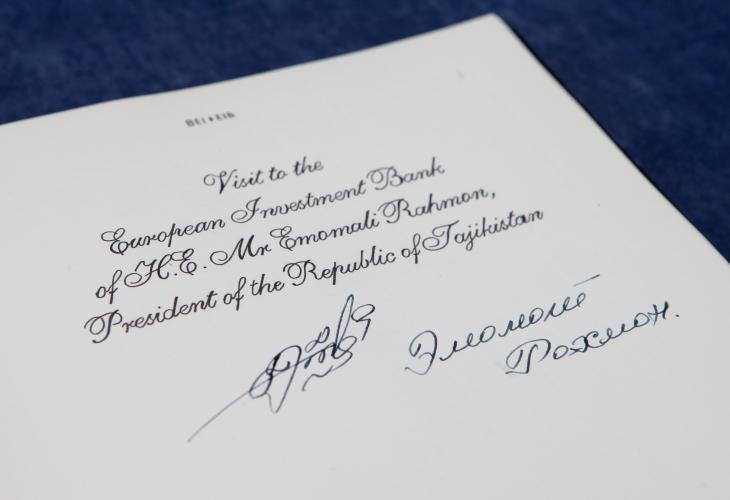 BEI♦EIB
Visit to the
European Investment Bank
of H.E. Mr Emomali Rahmon,
President of the Republic of Tajikistan
Эмомалӣ
Рахмон.